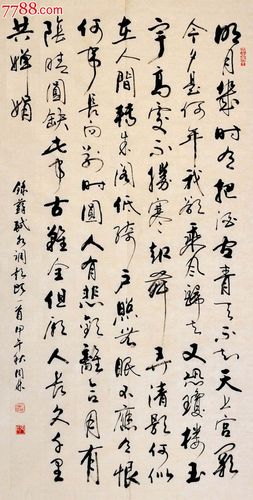 7788.com
明月幾時有把酒問青天不知天上宮闕
今夕是何年我欲乘風歸去又恐瓊樓玉
宇高處不勝寒起舞弄清影何似
在人間轉朱閣低綺戶照無眠不應有恨
何事長向別時圓人有悲歡離合月有
陰晴圓缺此事古難全但願人長久千里
共嬋娟
錄蘇軾水調歌頭一首甲午秋